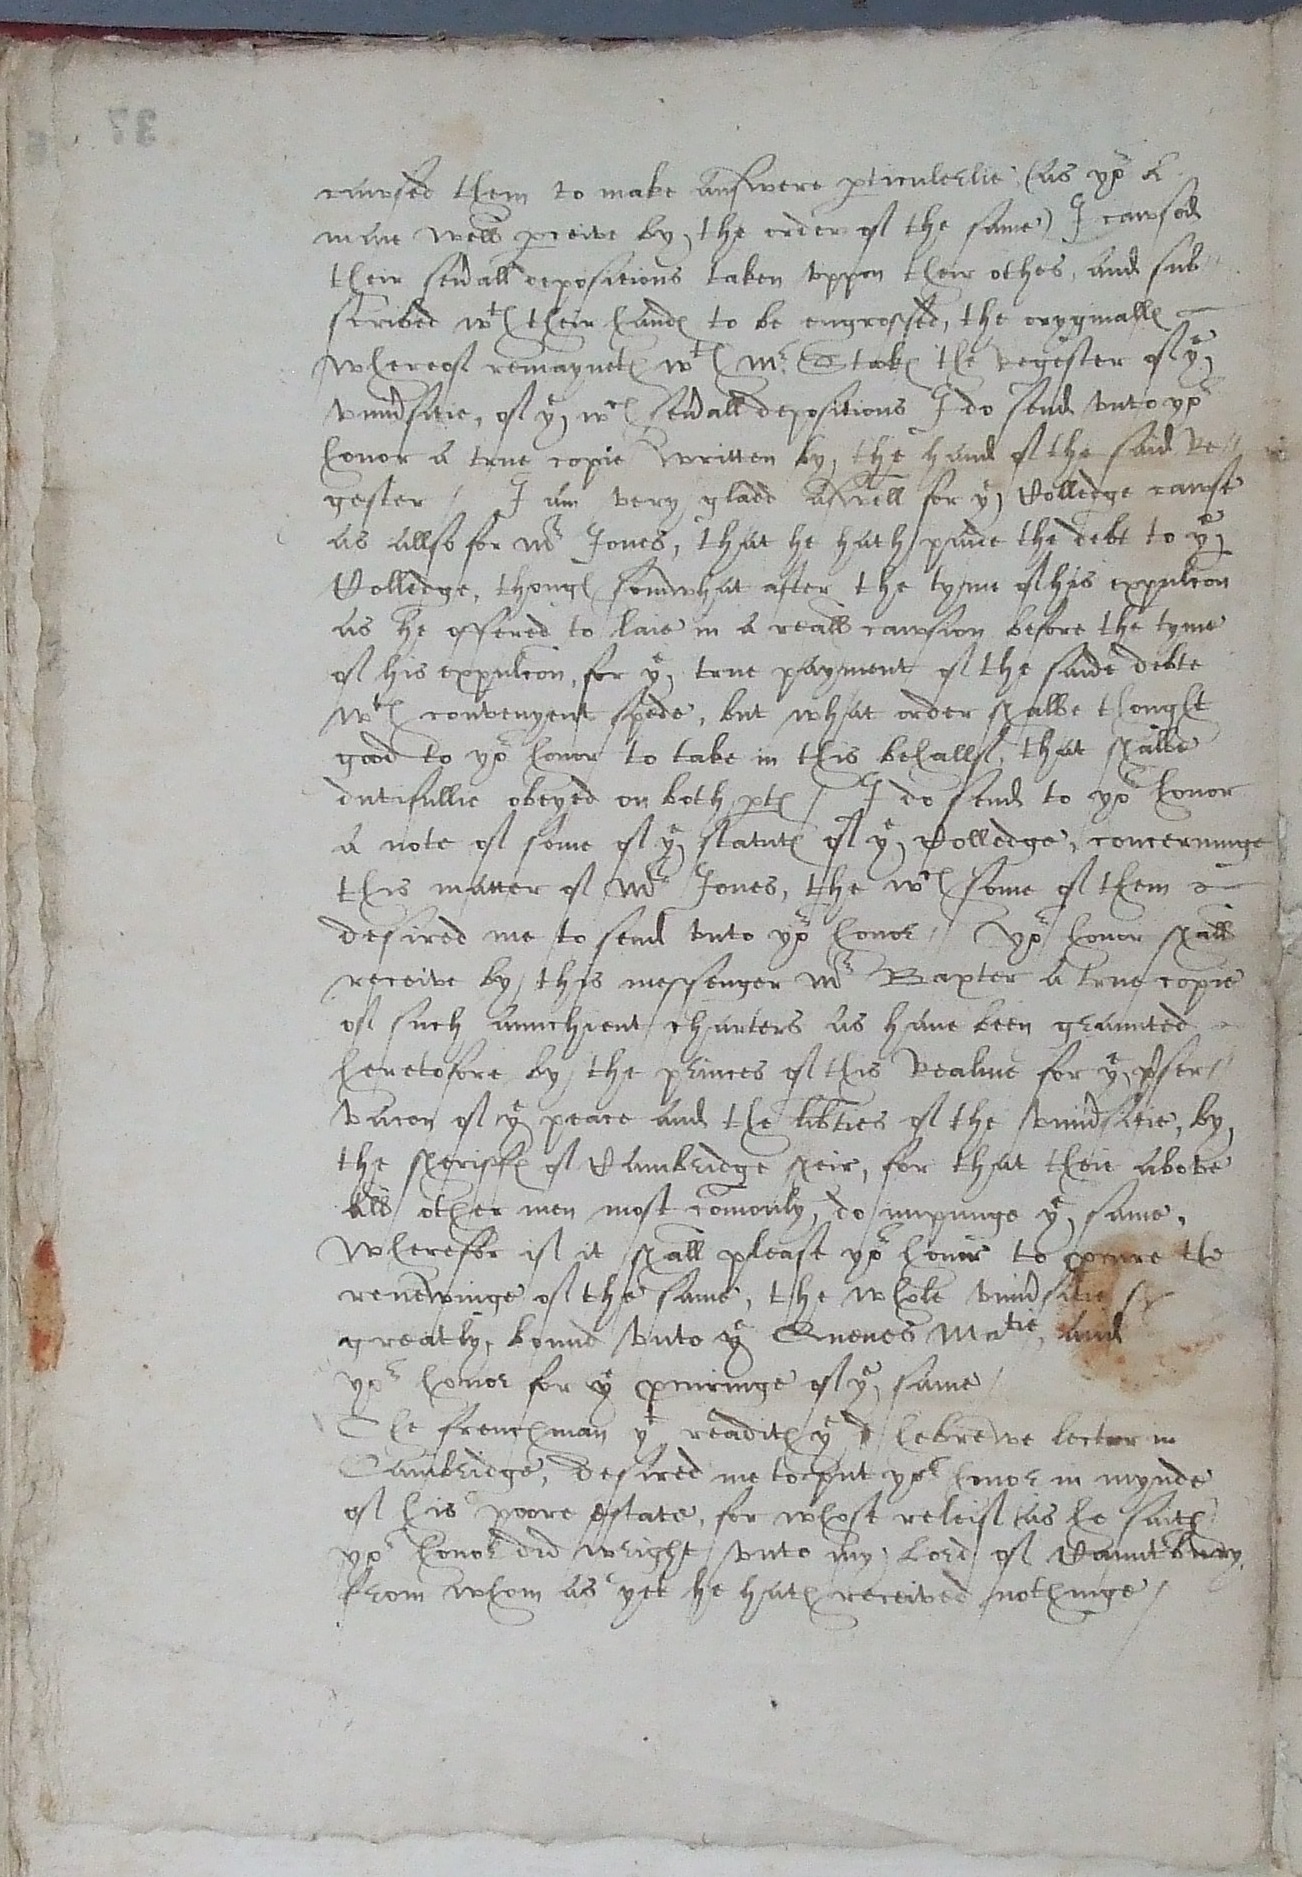 cawsed them to make answere pticulerlie (as yor h.
maie well pceive by the order of the same) I cawsed
their seuall depositions taken vppon their othes, and sub//
scribed wth their hands to be engrossed, the oryginalls
whereof remayneth wth mr Stoks the Regester of ye
vniusitie, of ye wch seuall depositions I do send vnto yor
honor a true copie written by the hand of the said Re//
gester / I am very gladd aswell for ye Colledge cawse
as allso for Mr Jones, that he hath paide the debt to ye
Colledge, though somwhat after the tyme of his expulcon
as he offered to laie in a reall cawsion before the tyme
of his expulcon, for ye true payment of the saide debte
wth convenyent spede, but what order shalbe thought
good to yor honor to take in this behallf, that shalbe
dutifullie obeyed on both pts / I do send to yor honor
a note of some of ye statuts of ye Colledge, concerninge
this matter of Mr Jones, the wch some of them
desired me to send vnto yor honor // Yor honor shall
receive by this messenger Mr Baxter a true copie
of such aunchient charters as haue been graunted
heretofore by the princes of this Realme for ye pser//
vacon of ye peace and the libties of the vniusitie, by
the Sheriffs of Cambridge sheir, for that theie above
all other men most comonly, do impunge ye same,
Wherefor if it shall please yor honor to pcure the
renewinge of the same, the whole vniusitie
greatly bound vnto ye Quenes Matie, and
yor honor for ye pcuringe of ye same /
The frenchman yt readith ye hebrewe lectur in
Cambridge, desired me to put yor honor in mynde
of his poore estate, for whose releif (as he saith)
yor honor did wright vnto my Lord of Caunterbury,
from whom as yet he hath received nothinge /
37